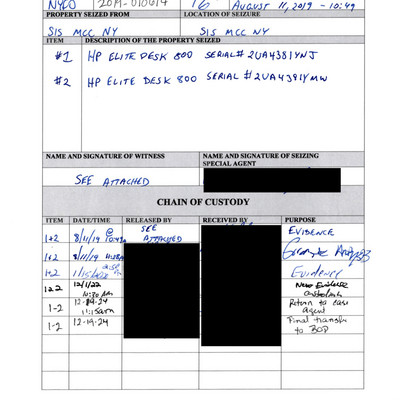 NYCO 2019-010614 16 AUGUST 11, 2019 - 10:49
PROPERTY SEIZED FROM LOCATION OF SEIZURE
SIS MCC NY SIS MCC NY
ITEM DESCRIPTION OF THE PROPERTY SEIZED
#1 HP ELITE DESK 800 SERIAL# 2UA4381YNJ
#2 HP ELITE DESK 800 SERIAL# 2UA4381YMW
NAME AND SIGNATURE OF WITNESS NAME AND SIGNATURE OF SEIZING SPECIAL AGENT
SEE ATTACHED
CHAIN OF CUSTODY
ITEM DATE/TIME RELEASED BY RECEIVED BY PURPOSE
1+2 8/11/19 @ SEE ATTACHED EVIDENCE
1+2 8/11/19
1+2 Evidence
1+2 12/1/22 11:30 Am New Evidence custodian
1-2 12-19-24 11:15am Return to case Agent
1-2 12-19-24 Final transfer to BOP